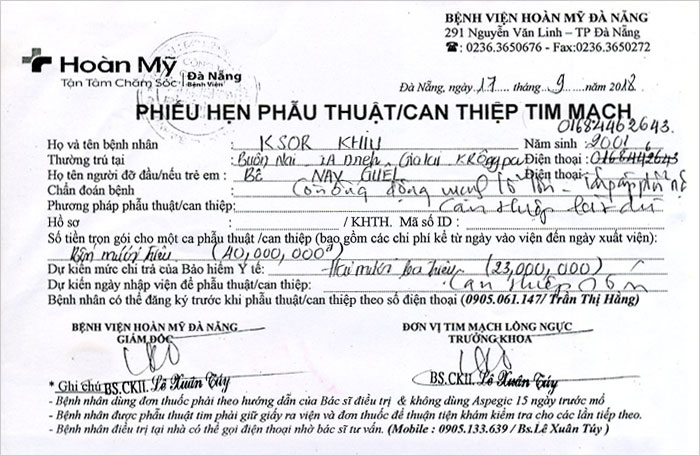 BỆNH VIỆN HOÀN MỸ ĐÀ NẴNG
291 Nguyễn Văn Linh – TP Đà Nẵng
☎: 0236.3650676 - Fax:0236.3650272
Hoàn Mỹ
Tận Tâm Chăm Sóc
Đà Nẵng
Bệnh Viện
Đà Nẵng, ngày 17 tháng 9 năm 2018
PHIẾU HẸN PHẪU THUẬT/CAN THIỆP TIM MẠCH
01684462643
Họ và tên bệnh nhân : KSOR KHIU Năm sinh : 2001
Thường trú tại : Buôn Nai - IA Điện thoại :
Họ tên người đỡ đầu/nếu trẻ em : Bê NAY GUEL Điện thoại :
Chẩn đoán bệnh : Còn ống động mạch
Phương pháp phẫu thuật/can thiệp: Can thiệp bít dù
Hồ sơ : / KHTH. Mã số ID :
Số tiền trọn gói cho một ca phẫu thuật /can thiệp (bao gồm các chi phí kể từ ngày vào viện đến ngày xuất viện):
Bốn mươi triệu (40,000,000đ)
Dự kiến mức chi trả của Bảo hiểm Y tế: Hai mươi ba triệu (23,000,000)
Dự kiến ngày nhập viện để phẫu thuật/can thiệp: Can thiệp
Bệnh nhân có thể đăng ký trước khi phẫu thuật/can thiệp theo số điện thoại (0905.061.147/ Trần Thị Hằng)
BỆNH VIỆN HOÀN MỸ ĐÀ NẴNG
GIÁM ĐỐC
ĐƠN VỊ TIM MẠCH LỒNG NGỰC
TRƯỞNG KHOA
* Ghi chú BS.CKII. Lê Xuân Túy
BS.CKII. Lê Xuân Túy
- Bệnh nhân dùng đơn thuốc phải theo hướng dẫn của Bác sĩ điều trị & không dùng Aspegic 15 ngày trước mổ
- Bệnh nhân được phẫu thuật tim phải giữ giấy ra viện và đơn thuốc để thuận tiện khám kiểm tra cho các lần tiếp theo.
- Bệnh nhân điều trị tại nhà có thể gọi điện thoại nhờ bác sĩ tư vấn. (Mobile : 0905.133.639 / Bs.Lê Xuân Túy )